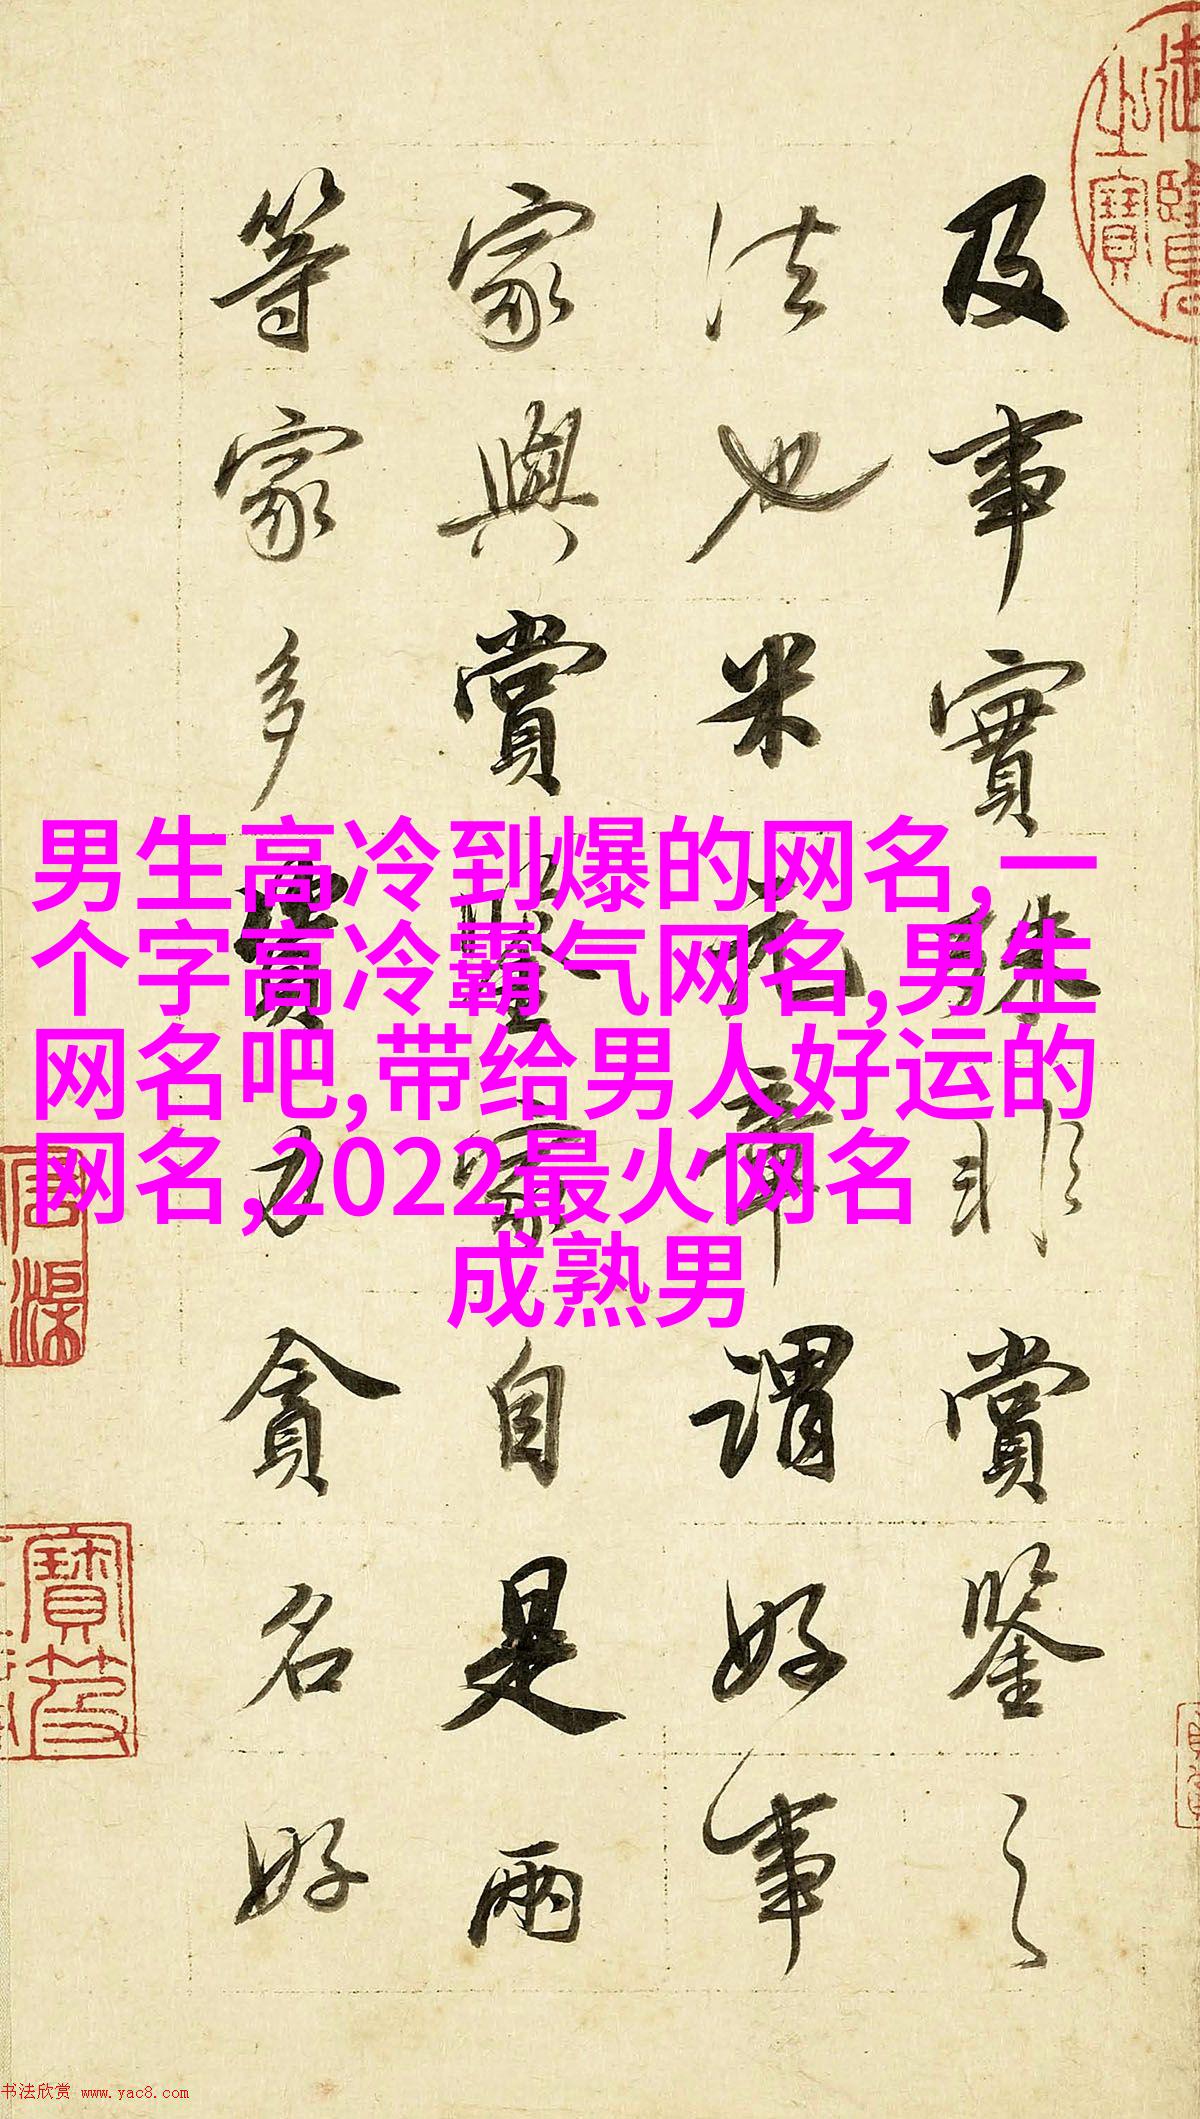 及事實殊非賞鑒之
法也米元章謂好事
家與賞鑒家自是兩
等家多資力貪名好
男生高冷到爆的网名,一
个字高冷霸气网名,男生
网名吧,带给男人好运的
网名,2022最火网名
成熟男
书法欣赏 www.yac8.com